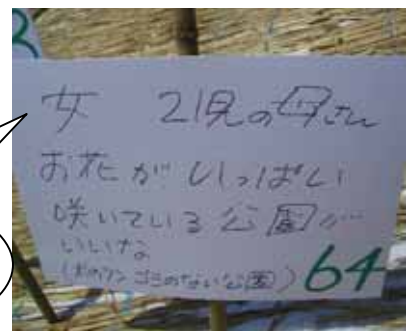 女 2児の母さん
お花がいっぱい
咲いている公園が
いいな
(犬のフン ゴミのない公園) 64